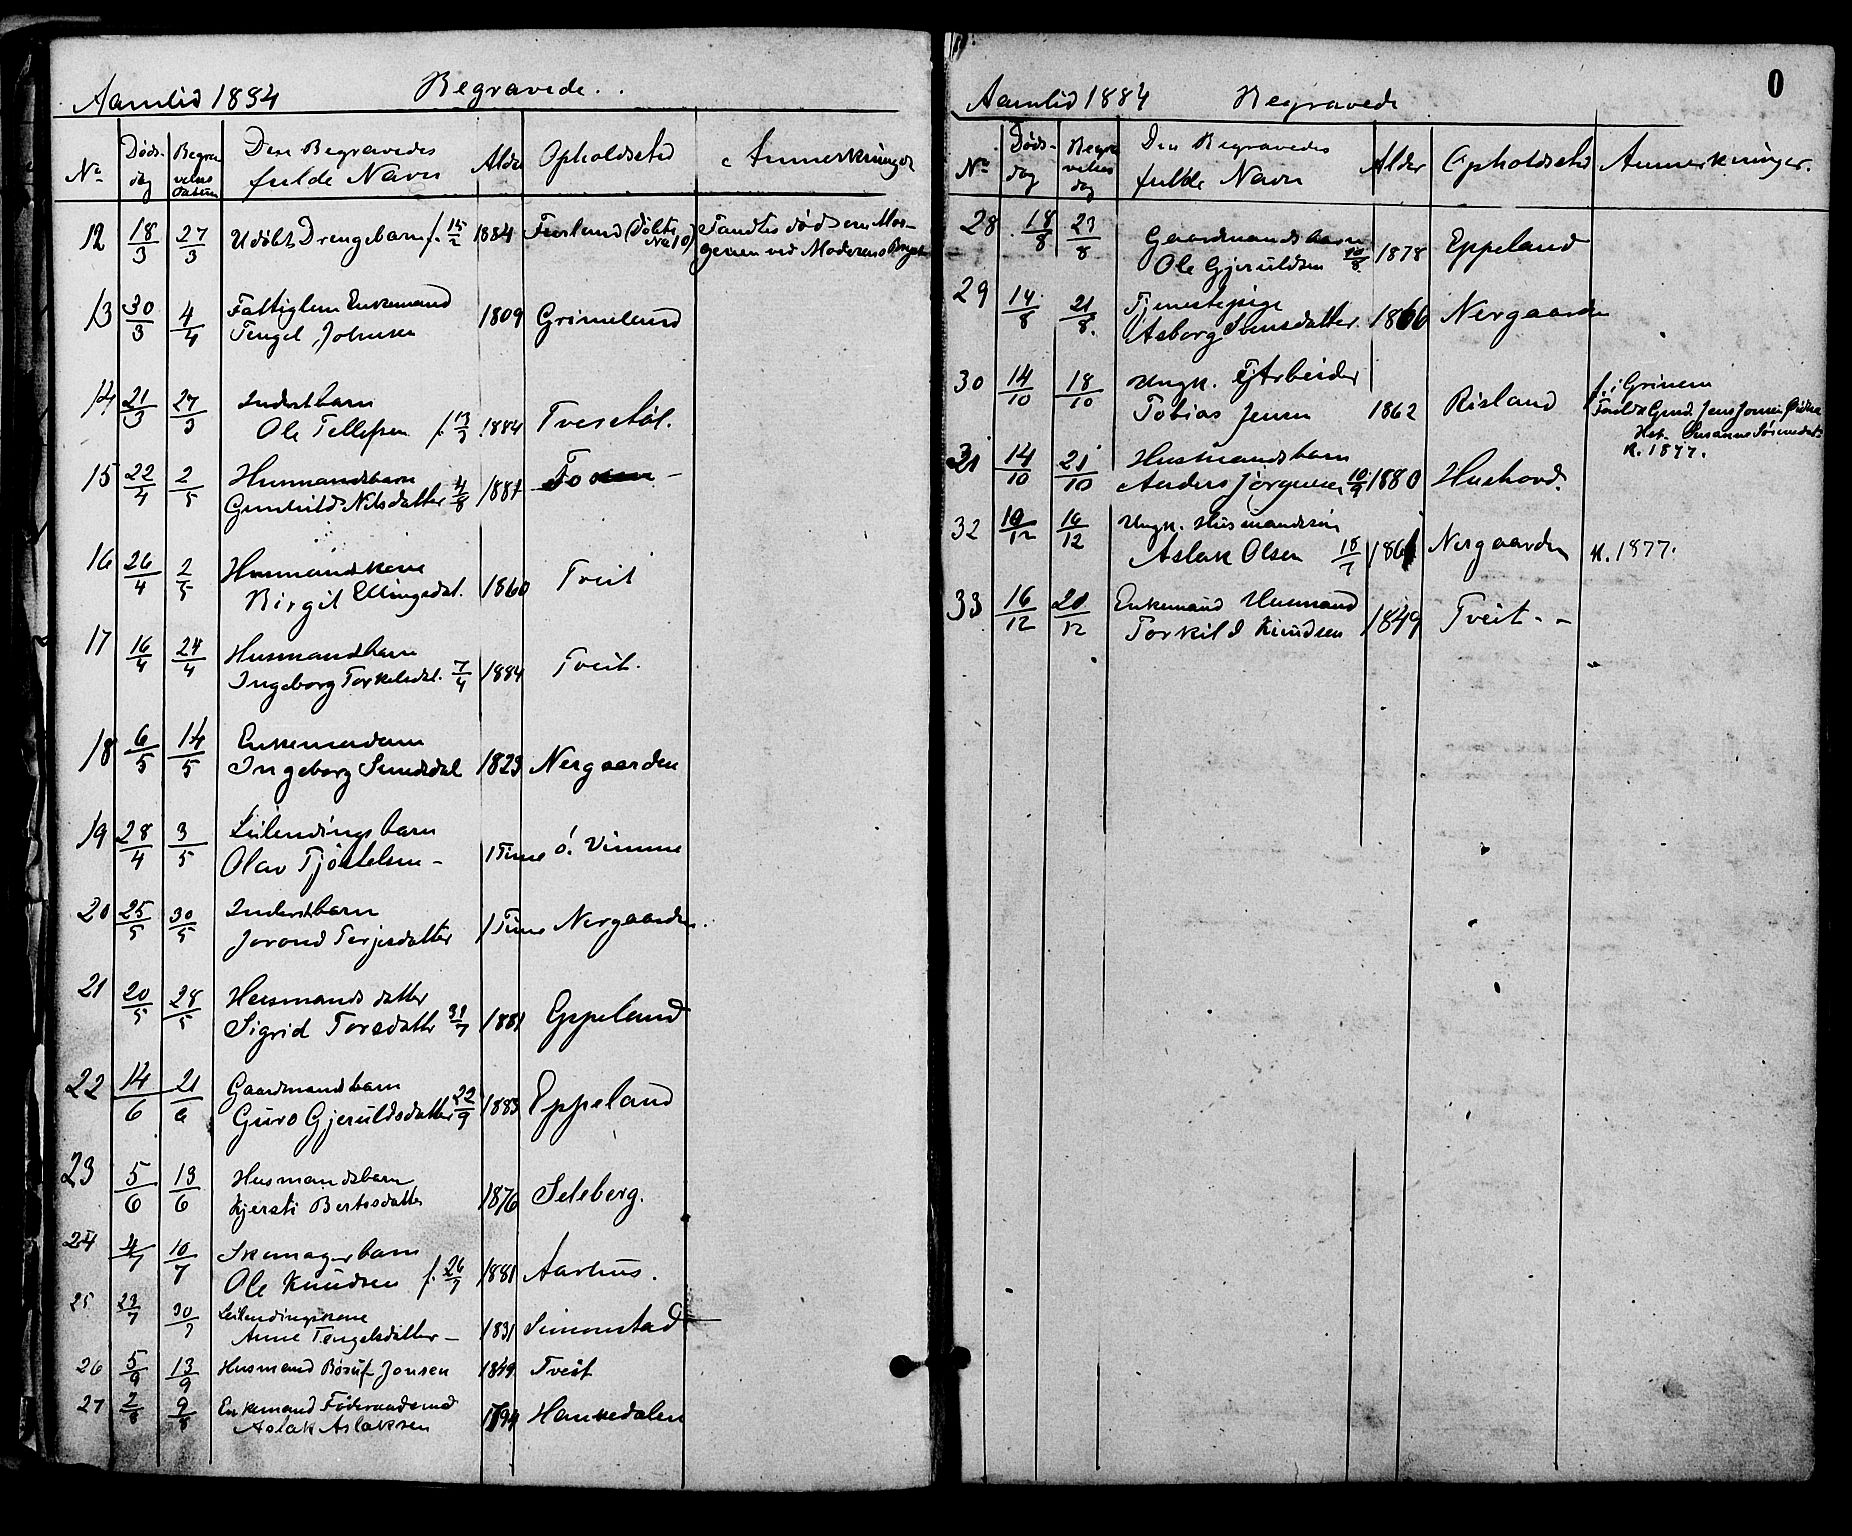 Aamlid 1884 Begravede.
No Døds-dag Begravelses datum Den Begravedes fulde Navn Alder Opholdssted Anmerkninger
12 18/3 27/3 Udøbt Drengebarn f. 15/2 1884 Fusland (Døbte No 10) Fandtes død om Mor-
genen ved Moderens Bryst
13 30/3 4/4 Fattiglem Enkemand
Tengel Johnsen 1809 Grimelund
14 21/3 27/3 Inderstbarn
Ole Tellefsen f. 13/3 1884 Tvesetøl.
15 22/4 2/5 Husmandsbarn
Gunhild Nilsdatter 4/8 1881
16 26/4 2/5 Husmandskone
Birgit Ellingsdat. 1860 Tveit
17 16/4 24/4 Husmandbarn
Ingeborg Torkelsdat. 7/4 1884 Tveit.
18 6/5 14/5 Enkemadam
Ingeborg Sundsdal 1823 Nergaarden
19 28/4 3/5 Leilendingsbarn
Olav Tjøstelsen - 1 Time Ö. Vimme
20 25/5 30/5 Inderstbarn
Jorond Terjesdatter 1 Time Nergaarden.
21 20/5 28/5 Husmands datter
Sigrid Torsdatter 31/7 1881 Eppeland
22 14/6 21/6 Gaardmandsbarn
Guro Gjeruldsdatter 22/9 1883 Eppeland
23 5/6 13/6 Husmandsbarn
Kjersti Bertosdatter 1876 Seleberg.
24 4/7 10/7 Skomagerbarn
Ole Knudsen f. 26/7 1881 Aarhus.
25 23/7 30/7 Leilendingskone
Anne Tengelsdatter - 1831 Simonstad
26 5/9 13/9 Husmand Jonsen 1849 Tveit
27 2/8 9/8 Enkemand Føderaadsmd
Aslak Aslaksen 1794 Hankedalen
Aamlid 1884 Begravede
0
No Døds-dag Begravelses dag Den Begravedes fulde Navn Alder Opholdssted Anmerkninger.
28 18/8 23/8 Gaardmandsbarn
Ole Gjeruldsen 10/8 1878 Eppeland
29 14/8 21/8 Tjenestepige
Asborg Sunsdatter 1866 Nergaarden
30 14/10 18/10 Ungk. Arbeider
Tobias Jensen 1862 Risland f. i Grinem
Forældr. Gmd. Jens Jonsen
Hst. Susanne Sørensdatr
K. 1877.
31 14/10 21/10 Husmandsbarn
Anders Jørgensen 10/9 1880 Hushovd.
32 10/12 16/12 Ungk. Husmandssøn
Aslak Olsen 18/7 1861 Nergaarden K. 1877.
33 16/12 20/12 Enkemand Husmand
Torkild Knudsen 1849 Tveit - -